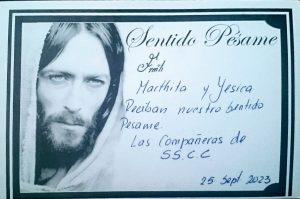 Sentido Pésame
Marthita y Yesica
Reciban nuestro sentido
Pesame.
Las Compañeras de
SS.C.C
25 Sept 2023